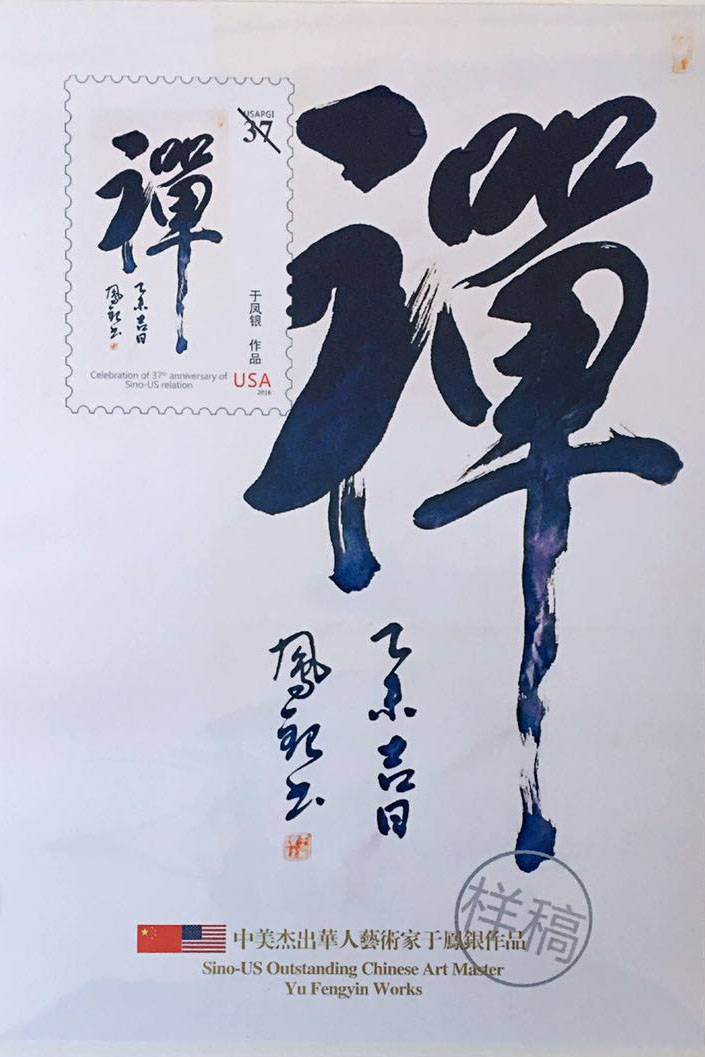 禪
USAPGI
37
禪
乙未吉日
鳳銀书
于凤银 作品
Celebration of 37th anniversary of
Sino-US relation
USA
2016
乙未吉日
鳳銀书
样稿
中美杰出華人藝術家于鳳銀作品
Sino-US Outstanding Chinese Art Master
Yu Fengyin Works